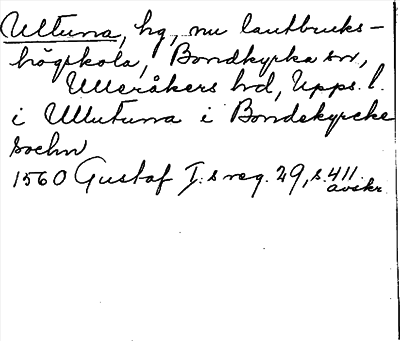 Ultuna, hg, nu lantbruks-
högskola, Bondkyrka sn,
Ulleråkers hd, Upps. l.
i Ullutuna i Bondekyrcke
sochn
1560 Gustaf I:s reg. 29, s. 411
avskr.